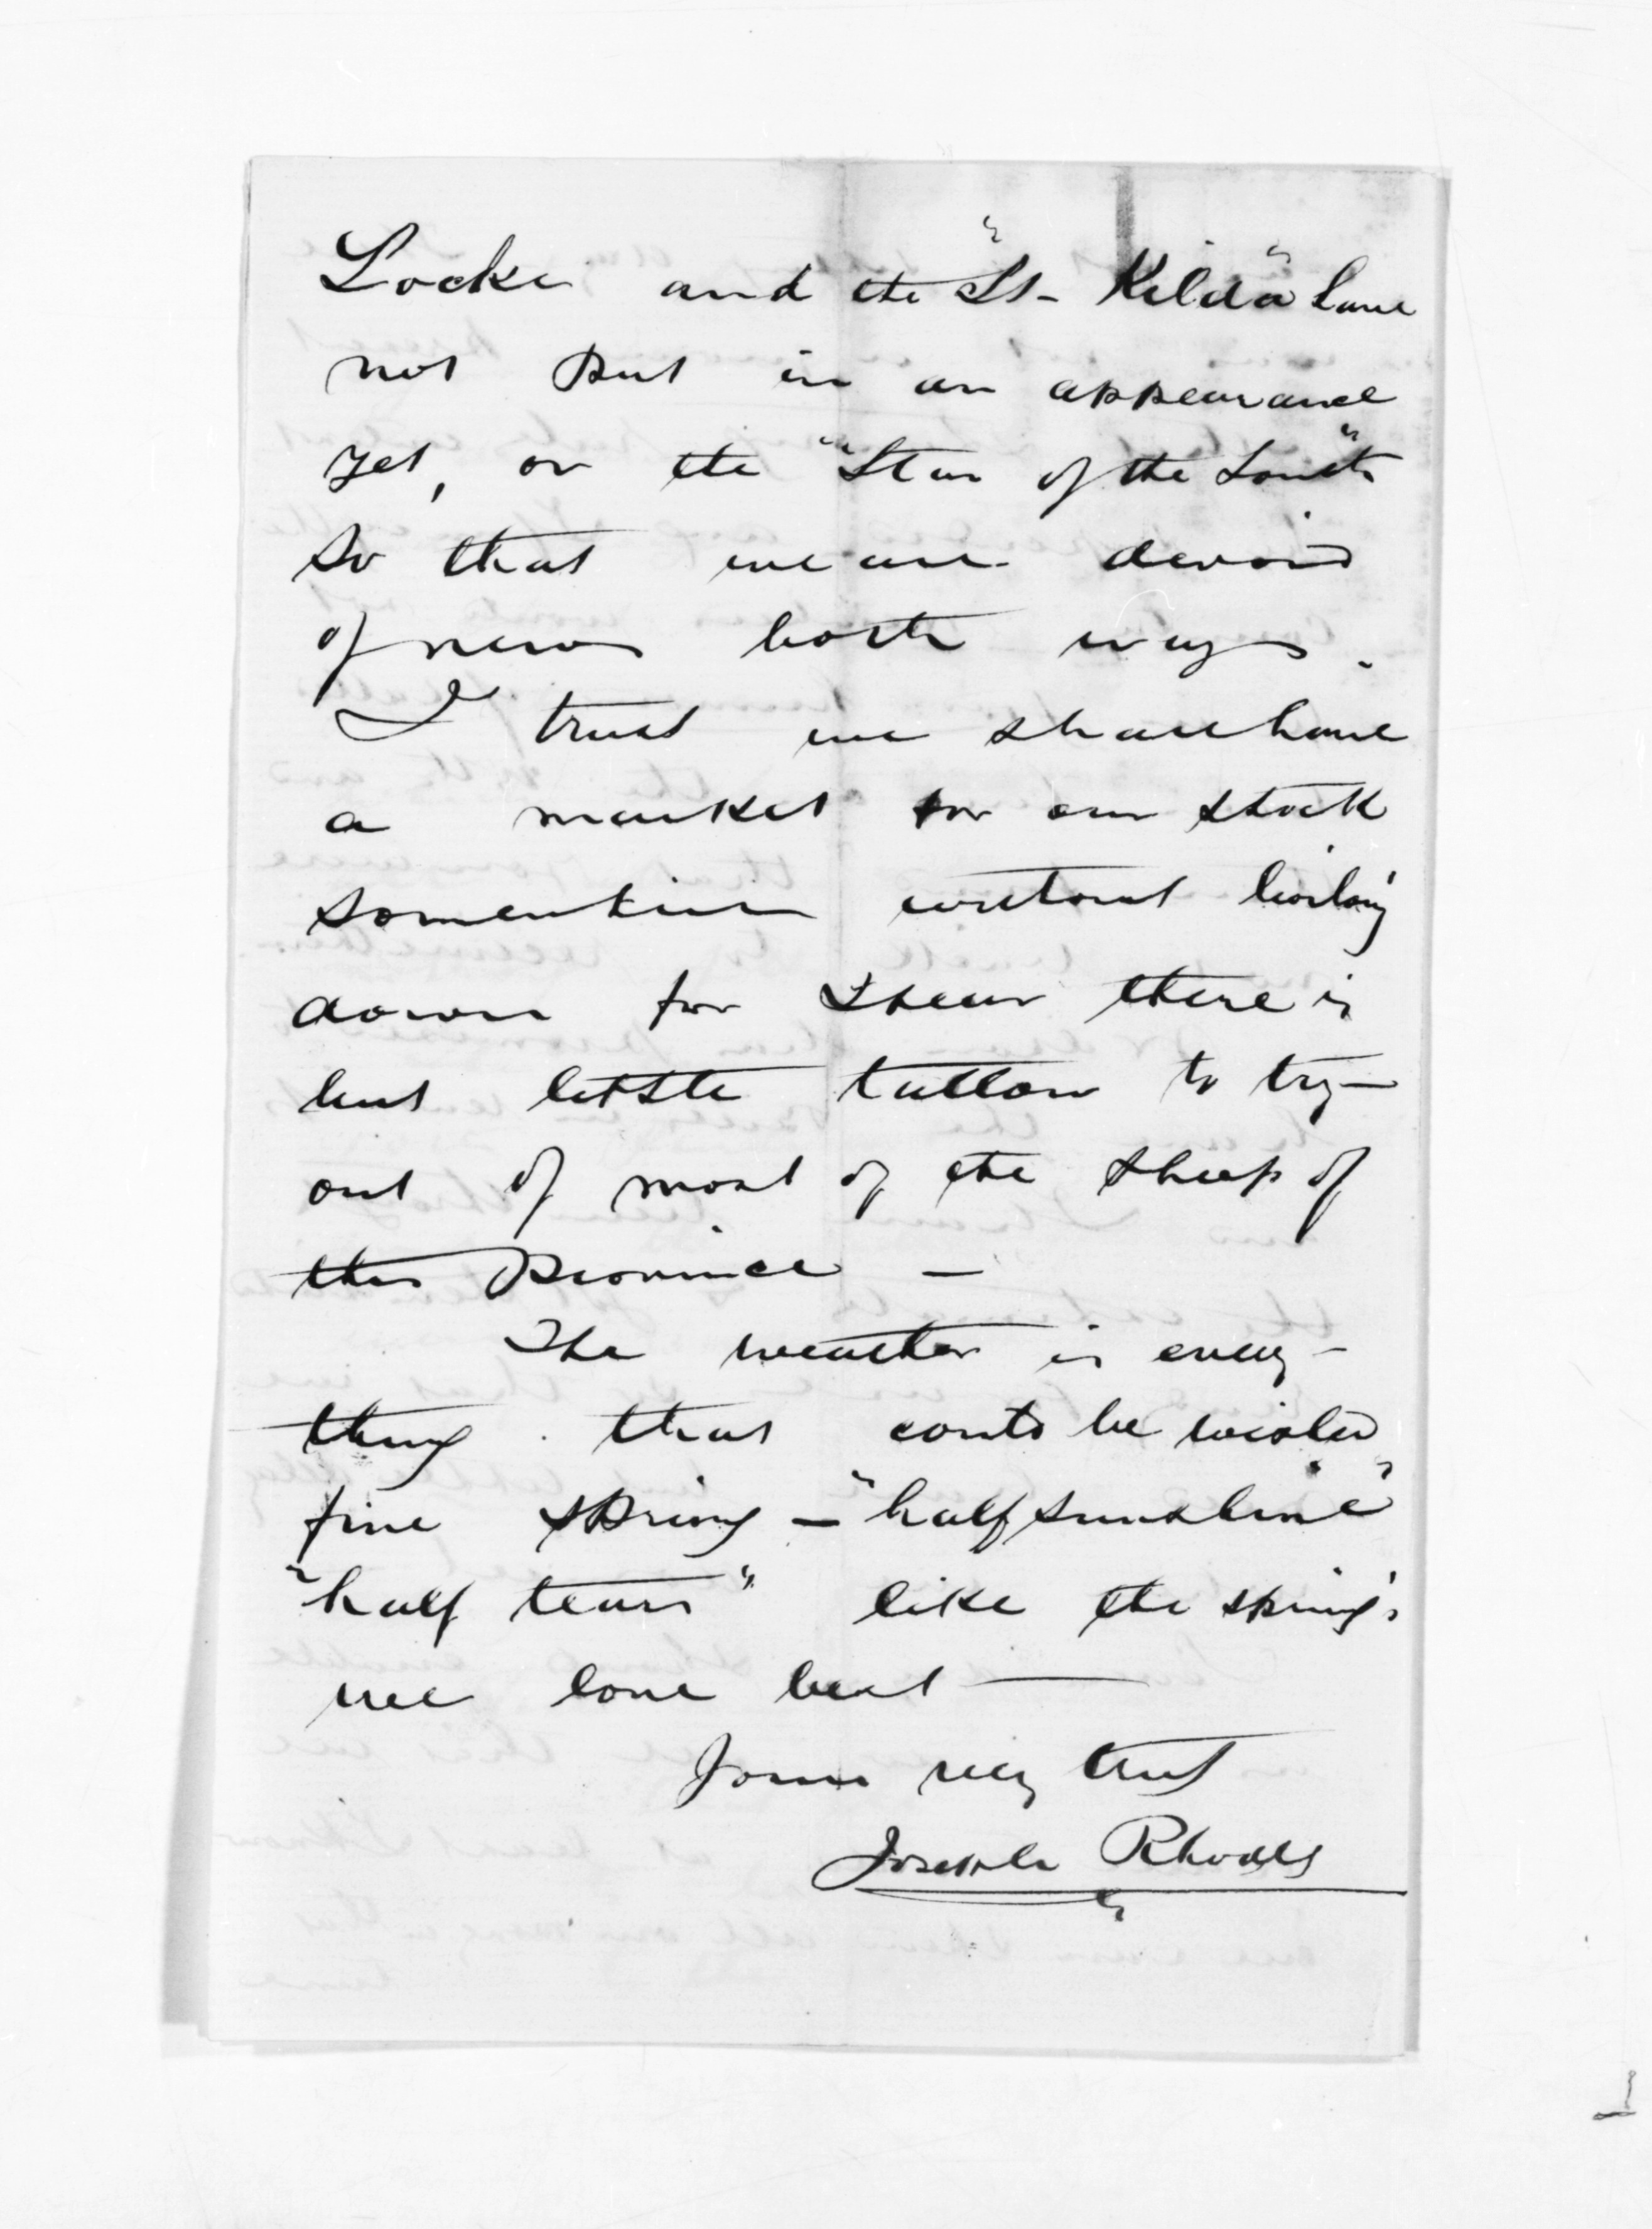 Locke and the "St- Kilda" have
not put in an appearance
yet, or the "Star of the South"
so that we are devoid
of news both ways.
I trust we shall have
a market for our stock
sometime without boiling
down for I hear there is
but little tallow to try-
out of most of the sheep of
this Province —
The weather is every-
thing that could be wished
fine spring — "half sunshine"
"half tears" like the springs
we love best —
Yours very truly
Joseph Rhodes